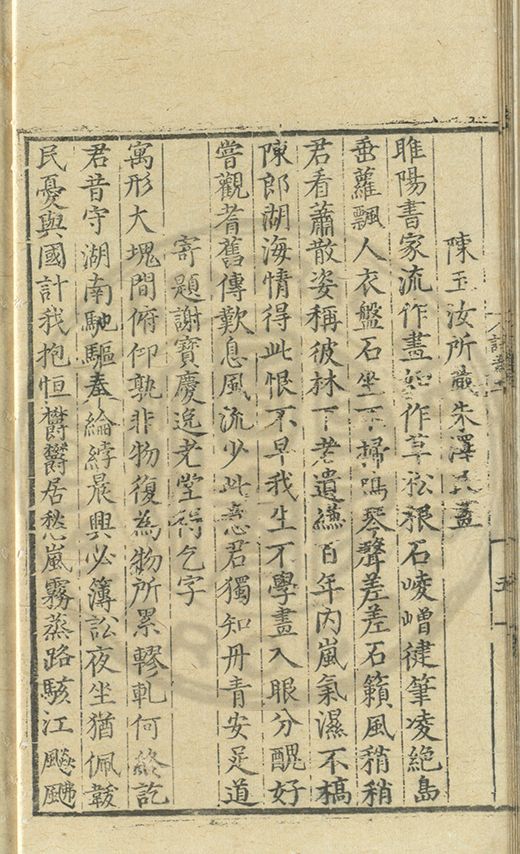 陳玉汝所藏朱澤民畫
睢陽書家流作畫如作草松根石崚嶒徤筆凌絶島
垂蘿飄人衣盤石坐下掃鳴琴聲差差石籟風稍稍
君看蕭散姿稱彼林下老遺縑百年内嵐氣濕不槁
陳郎湖海情得此恨不早我生不學畫入眼分醜好
嘗觀耆舊傳歎息風流少此意君獨知丹青安足道
寄題謝寶慶逸老堂得乞字
寓形大塊間俯仰孰非物復為物所累轇軋何終訖
君昔守湖南馳驅奉綸綍晨興必簿訟夜坐猶佩韍
民憂與國計我抱恒欝欝居愁嵐霧蒸路駭江飈